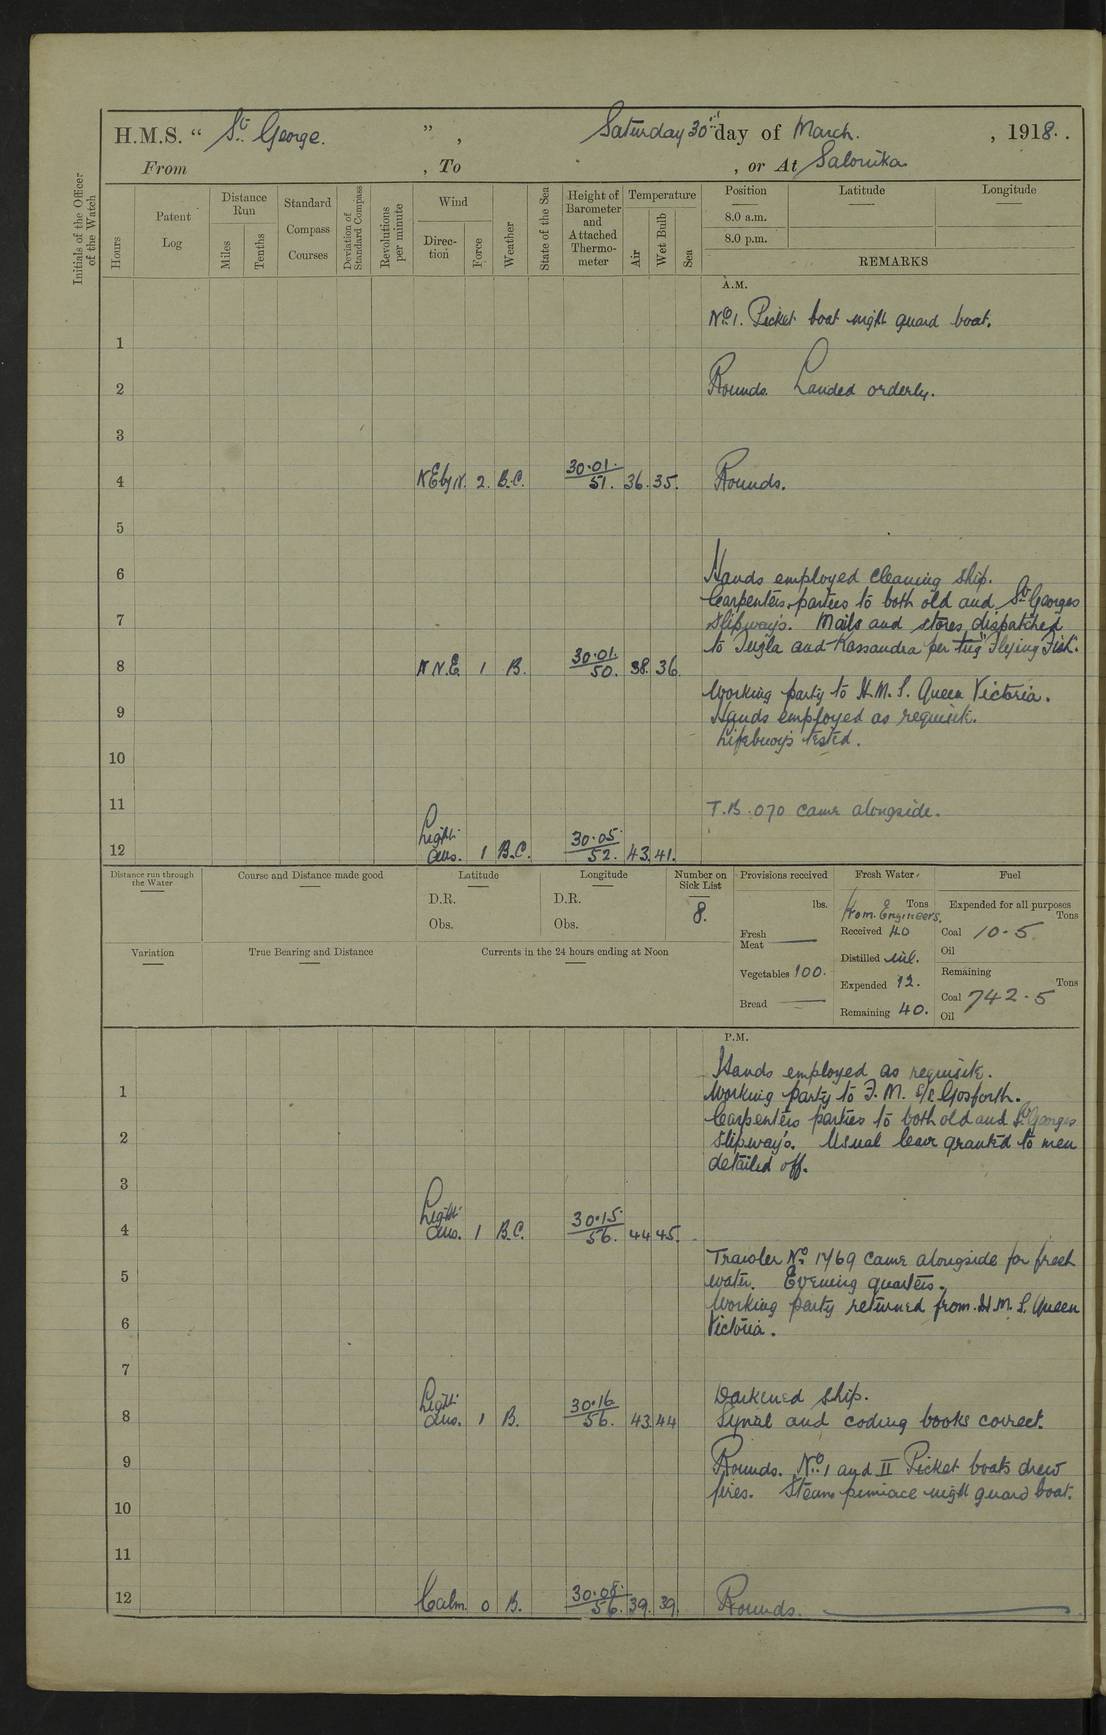 H.M.S. “ St. George. ” , Saturday 30th day of March. , 1918.
From , To , or At Salonika
Initials of the Officer of the Watch
Hours
Patent Log
Distance Run
Miles
Tenths
Standard Compass Courses
Deviation of Standard Compass
Revolutions per minute
Wind
Direc-tion
Force
Weather
State of the Sea
Height of Barometer and Attached Thermo-meter
Temperature
Air
Wet Bulb
Sea
Position Latitude Longitude
8.0 a.m.
8.0 p.m.
REMARKS
A.M.
No. 1. Picket boat night guard boat.
1
2 Rounds. Landed orderly.
3
4 N E by N. 2. B.C. 30.01. / 51. 36. 35. Rounds.
5
6 Hands employed cleaning ship.
Carpenters parties to both old and St. Georges
7 slipways. Mails and stores dispatched
to Tuzla and Kassandra per tug "Flying Fish".
8 N N.E. 1 B. 30.01. / 50. 38. 36
Working party to H.M.S. Queen Victoria.
9 Hands employed as requisite.
Lifebuoys tested.
10
11 T.B. 070 came alongside.
12 Light airs. 1 B.C. 30.05. / 52. 43. 41.
Distance run through the Water
Course and Distance made good
Latitude
D.R.
Obs.
Longitude
D.R.
Obs.
Number on Sick List
8.
Provisions received
lbs.
Fresh Meat
Vegetables 100.
Bread
Fresh Water
Tons
From Engineers.
Received 40
Distilled nil.
Expended 12.
Remaining 40.
Fuel
Expended for all purposes
Tons
Coal 10.5
Oil
Remaining
Tons
Coal 742.5
Oil
Variation
True Bearing and Distance
Currents in the 24 hours ending at Noon
P.M.
Hands employed as requisite.
1 Working party to F. M. S/S Gosforth.
Carpenters parties to both old and St. Georges
2 slipways. Usual leave granted to men
detailed off.
3
4 Light airs. 1 B.C. 30.15 / 56. 44 45.
Trawler No. 1769 came alongside for fresh
5 water. Evening quarters.
Working party returned from H.M.S. Queen
6 Victoria.
7
Darkened ship.
8 Light airs. 1 B. 30.16 / 56. 43. 44 Signal and coding books correct.
9 Rounds. No. 1 and II Picket boats drew
fires. Steam pinnace night guard boat.
10
11
12 Calm. 0 B. 30.08. / 56. 39. 39. Rounds.